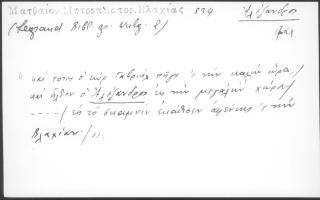 Ματθαίου Μητροπ. Ιστορ. Βλαχίας 534 Ἀλέξανδρος
(Legrand Bibl. gr. vulg. 2)
" καὶ τότε ὁ κύρ Γαβριὴλ πῆγε 'ς τὴν καλὴν ὥρα, /
καὶ ἦλθεν ὁ Ἀλέξανδρος εἰς τὴν μεγάλην χώρα /
- - - - / εἰς τὸ σκαμνὶν ἐκάθισεν ἀφέντης 'ς τὴν
Βλαχίαν / "